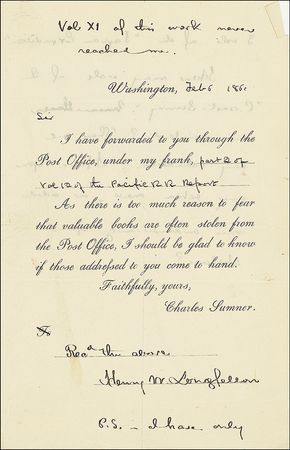 Vol XI of this work never
reached me.
Washington, Feb 6 186
Sir
I have forwarded to you through the
Post Office, under my frank, part 2 of
Vol 12 of the Pacific R R Report
As there is too much reason to fear
that valuable books are often stolen from
the Post Office, I should be glad to know
if those addressed to you come to hand.
Faithfully, yours,
Charles Sumner.
Recd the above
Henry W. Longfellow
P.S. – I have only